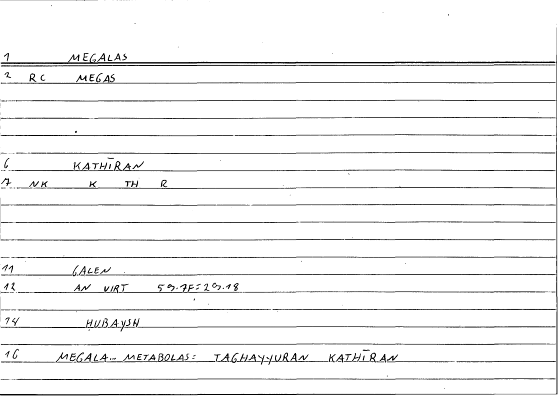 1 MEGALAS
2 RC MEGAS
6 KATHĪRAN
7 NK K TH R
11 GALEN
12 AN VIRT 59.7F=29.18
14 HUBAYSH
16 MEGALA.. METABOLAS: TAGHAYYURAN KATHĪRAN